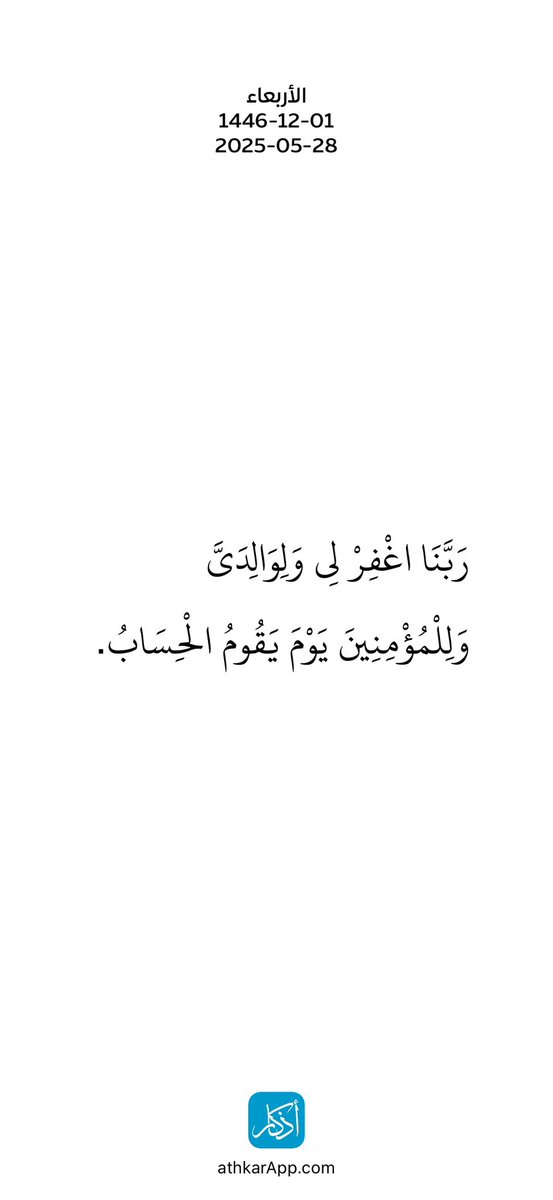 الأربعاء
1446-12-01
2025-05-28
رَبَّنَا اغْفِرْ لِى وَلِوَالِدَىَّ
وَلِلْمُؤْمِنِينَ يَوْمَ يَقُومُ الْحِسَابُ.
أذكار
athkarApp.com